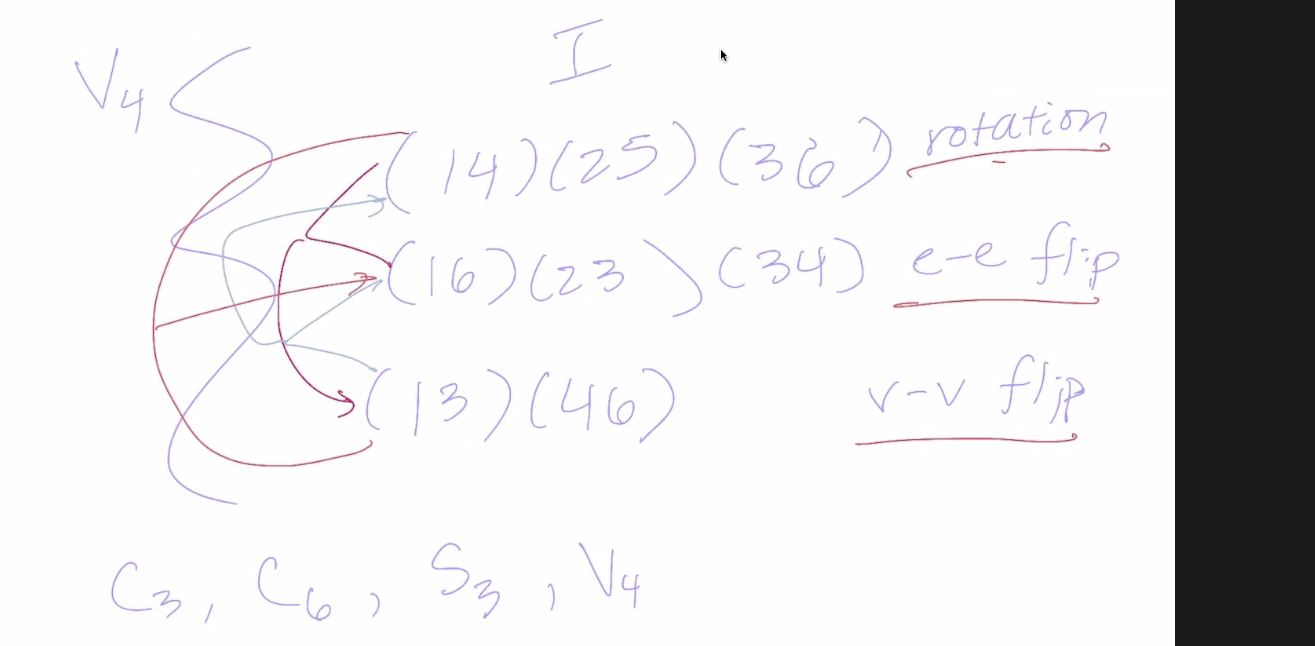 I
V4
(14)(25)(36) rotation
(16)(23)(34) e-e flip
(13)(46) v-v flip
C3, C6, S3, V4